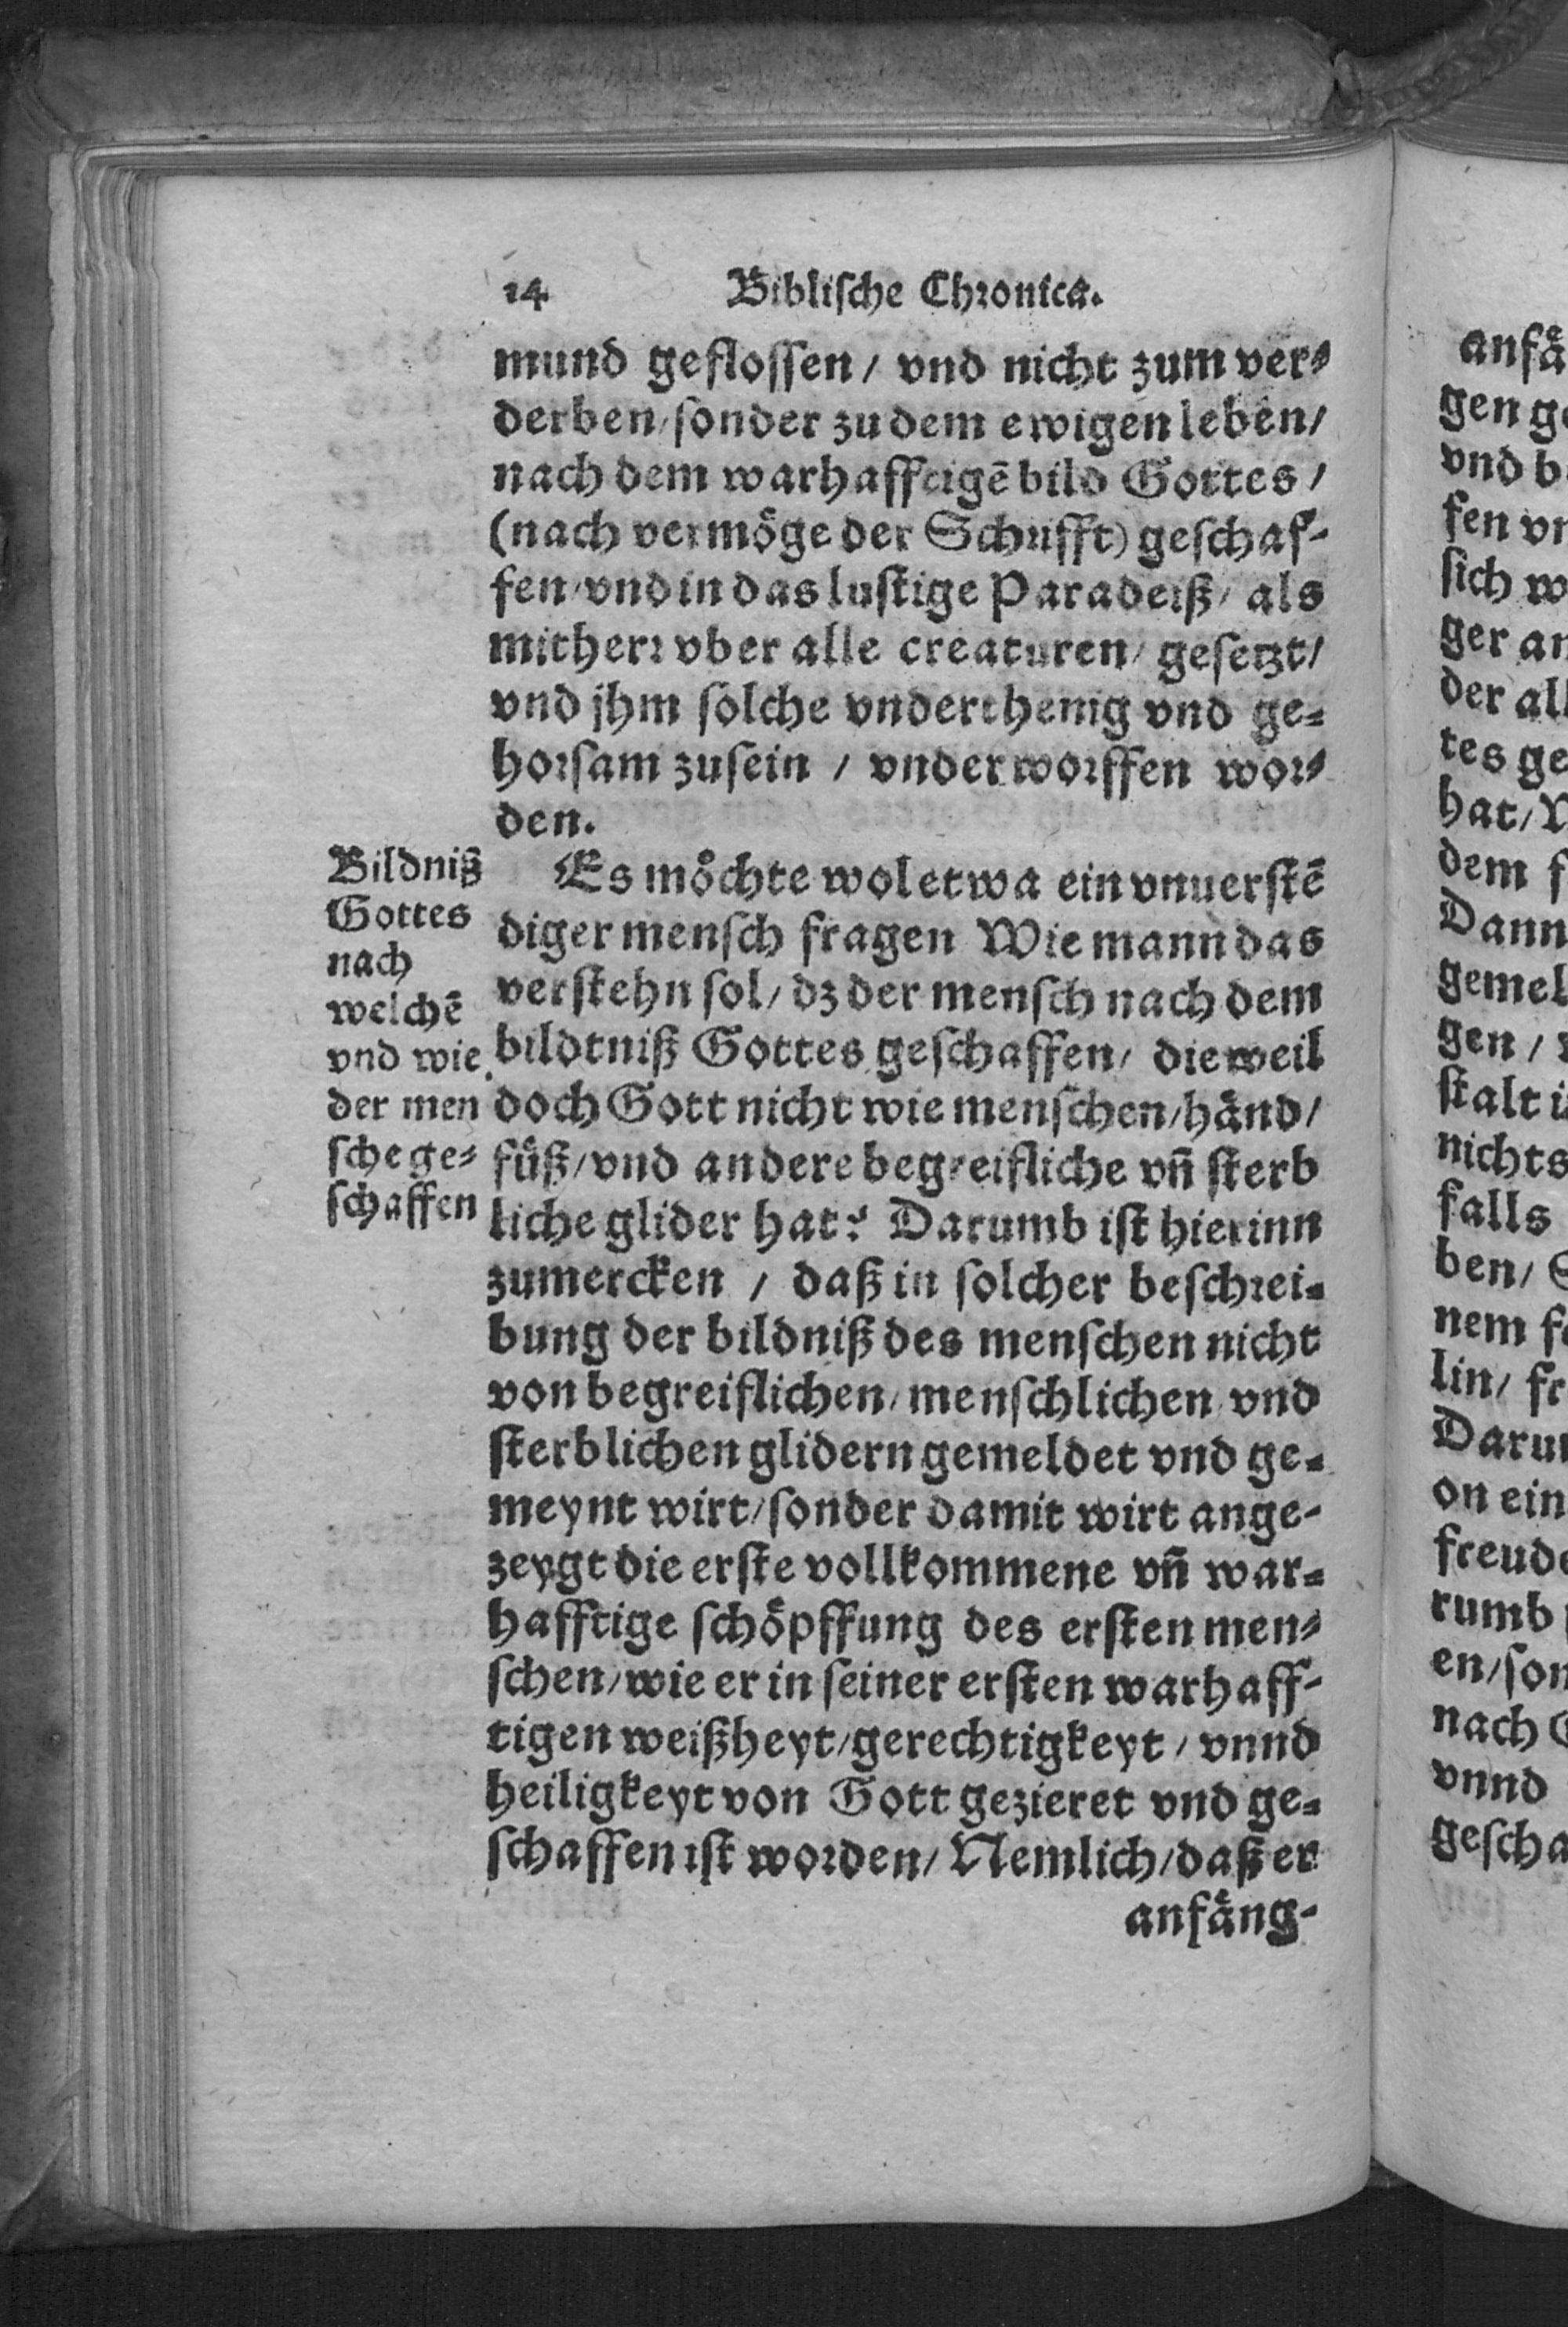 14 Biblische Chronica.
mund geflossen / vnd nicht zum ver⸗
derben / sonder zu dem ewigen leben /
nach dem warhafftigē bild Gottes /
(nach vermöge der Schrifft) geschaf⸗
fen / vnd in das lustige Paradeiß / als
mitherr vber alle creaturen / gesetzt /
vnd jhm solche vnderthenig vnd ge⸗
horsam zusein / vnderworffen wor⸗
den.
Es möchte wol etwa ein vnuerstē
diger mensch fragen Wie mann das
verstehn sol / dz der mensch nach dem
bildtniß Gottes geschaffen / dieweil
doch Gott nicht wie menschen / händ /
füß / vnd andere begreifliche vñ sterb
liche glider hat? Darumb ist hierinn
zumercken / daß in solcher beschrei⸗
bung der bildniß des menschen nicht
von begreiflichen / menschlichen vnd
sterblichen glidern gemeldet vnd ge⸗
meynt wirt / sonder damit wirt ange⸗
zeygt die erste vollkommene vñ war⸗
hafftige schöpffung des ersten men⸗
schen / wie er in seiner ersten warhaff⸗
tigen weißheyt / gerechtigkeyt / vnnd
heiligkeyt von Gott gezieret vnd ge⸗
schaffen ist worden / Nemlich / daß er
anfäng⸗
Bildniß
Gottes
nach
welchē
vnd wie
der men
sche ge⸗
schaffen
anfä
gen ge
vnd b
fen vn
sich w
ger an
der all
tes ge
hat /
dem f
Dann
gemel
gen /
stalt i
nichts
falls
ben /
nem fe
lin / fr
Darum
on ein
freude
rumb
en / son
nach G
vnnd
gescha